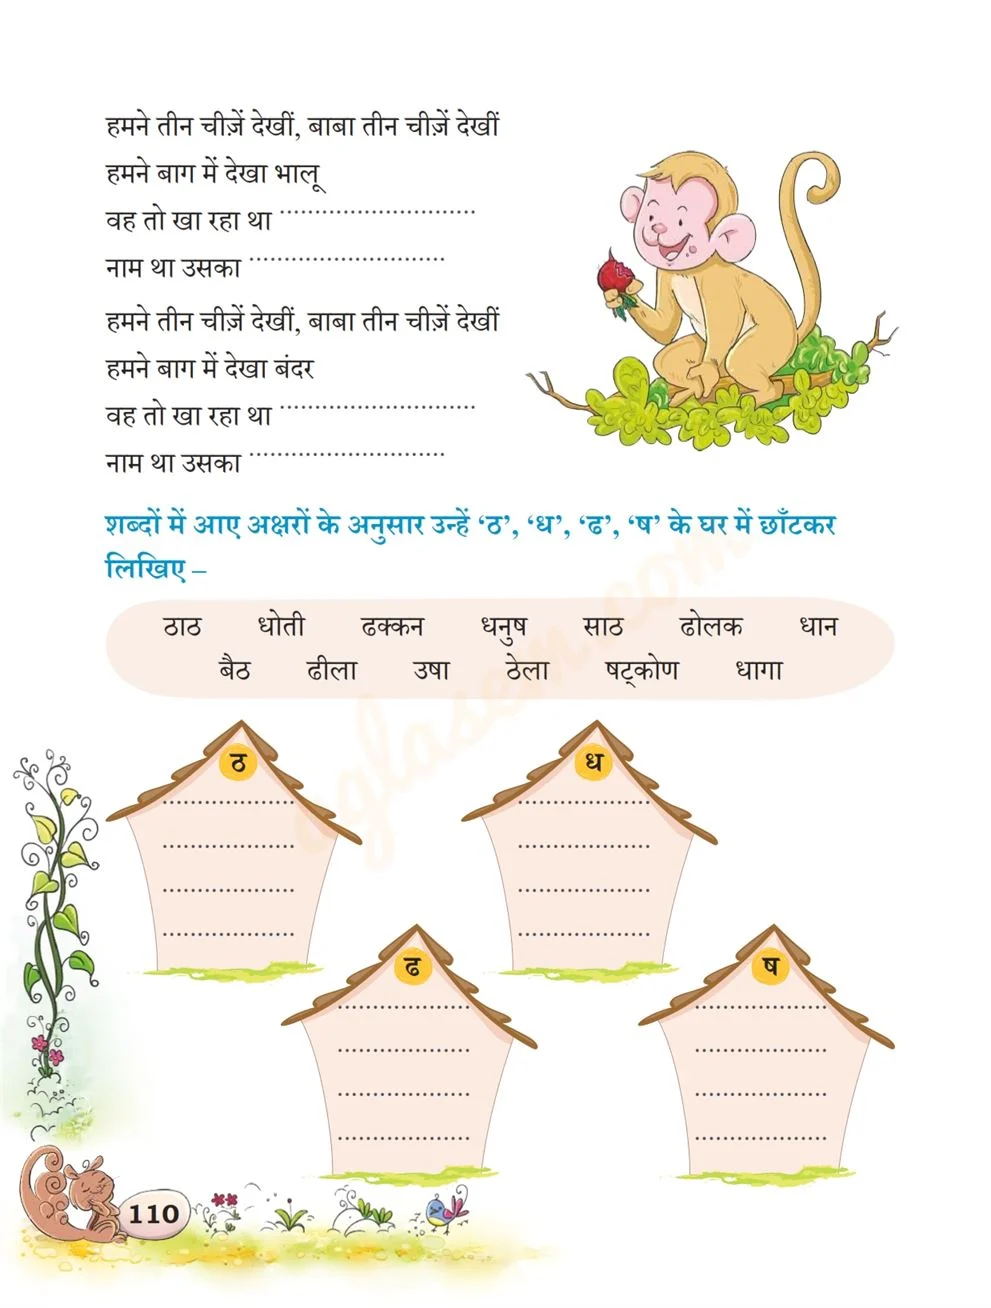 हमने तीन चीज़ें देखीं, बाबा तीन चीज़ें देखीं
हमने बाग में देखा भालू
वह तो खा रहा था ............................
नाम था उसका ............................
हमने तीन चीज़ें देखीं, बाबा तीन चीज़ें देखीं
हमने बाग में देखा बंदर
वह तो खा रहा था ............................
नाम था उसका ............................
शब्दों में आए अक्षरों के अनुसार उन्हें ‘ठ’, ‘ध’, ‘ढ’, ‘ष’ के घर में छाँटकर
लिखिए –
ठाठ धोती ढक्कन धनुष साठ ढोलक धान
बैठ ढीला उषा ठेला षट्कोण धागा
ठ
ध
ढ
ष
110
aglasem.com